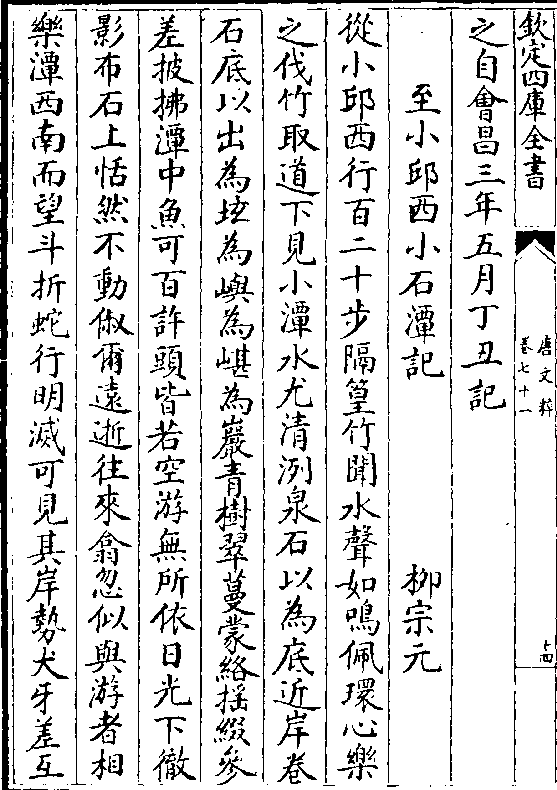 欽定四庫全書
唐文粹
卷七十一
十四
之自會昌三年五月丁丑記
至小邱西小石潭記 柳宗元
從小邱西行百二十步隔篁竹聞水聲如鳴佩環心樂
之伐竹取道下見小潭水尤清洌泉石以為底近岸卷
石底以出為坻為嶼為嵁為巖青樹翠蔓蒙絡揺綴參
差披拂潭中魚可百許頭皆若空游無所依日光下徹
影布石上恬然不動俶爾遠逝往來翕忽似與游者相
樂潭西南而望斗折蛇行明滅可見其岸勢犬牙差互